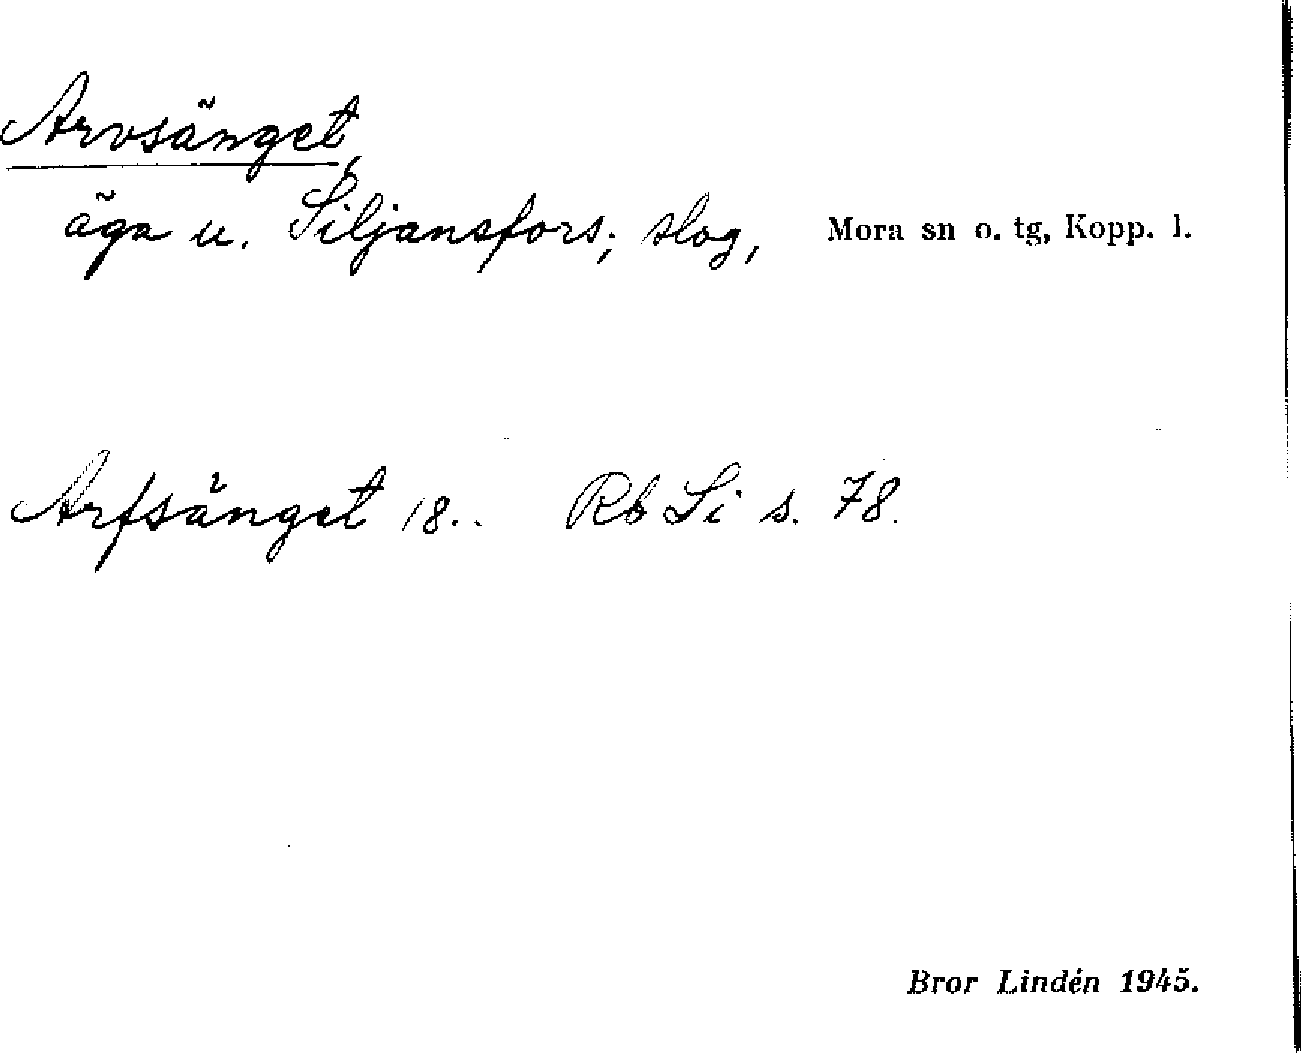 Arvsänget,
äga u. Siljansfors; slog, Mora sn o. tg, Kopp. l.
Arfsänget 18.. Rb Si s. 78.
Bror Lindén 1945.